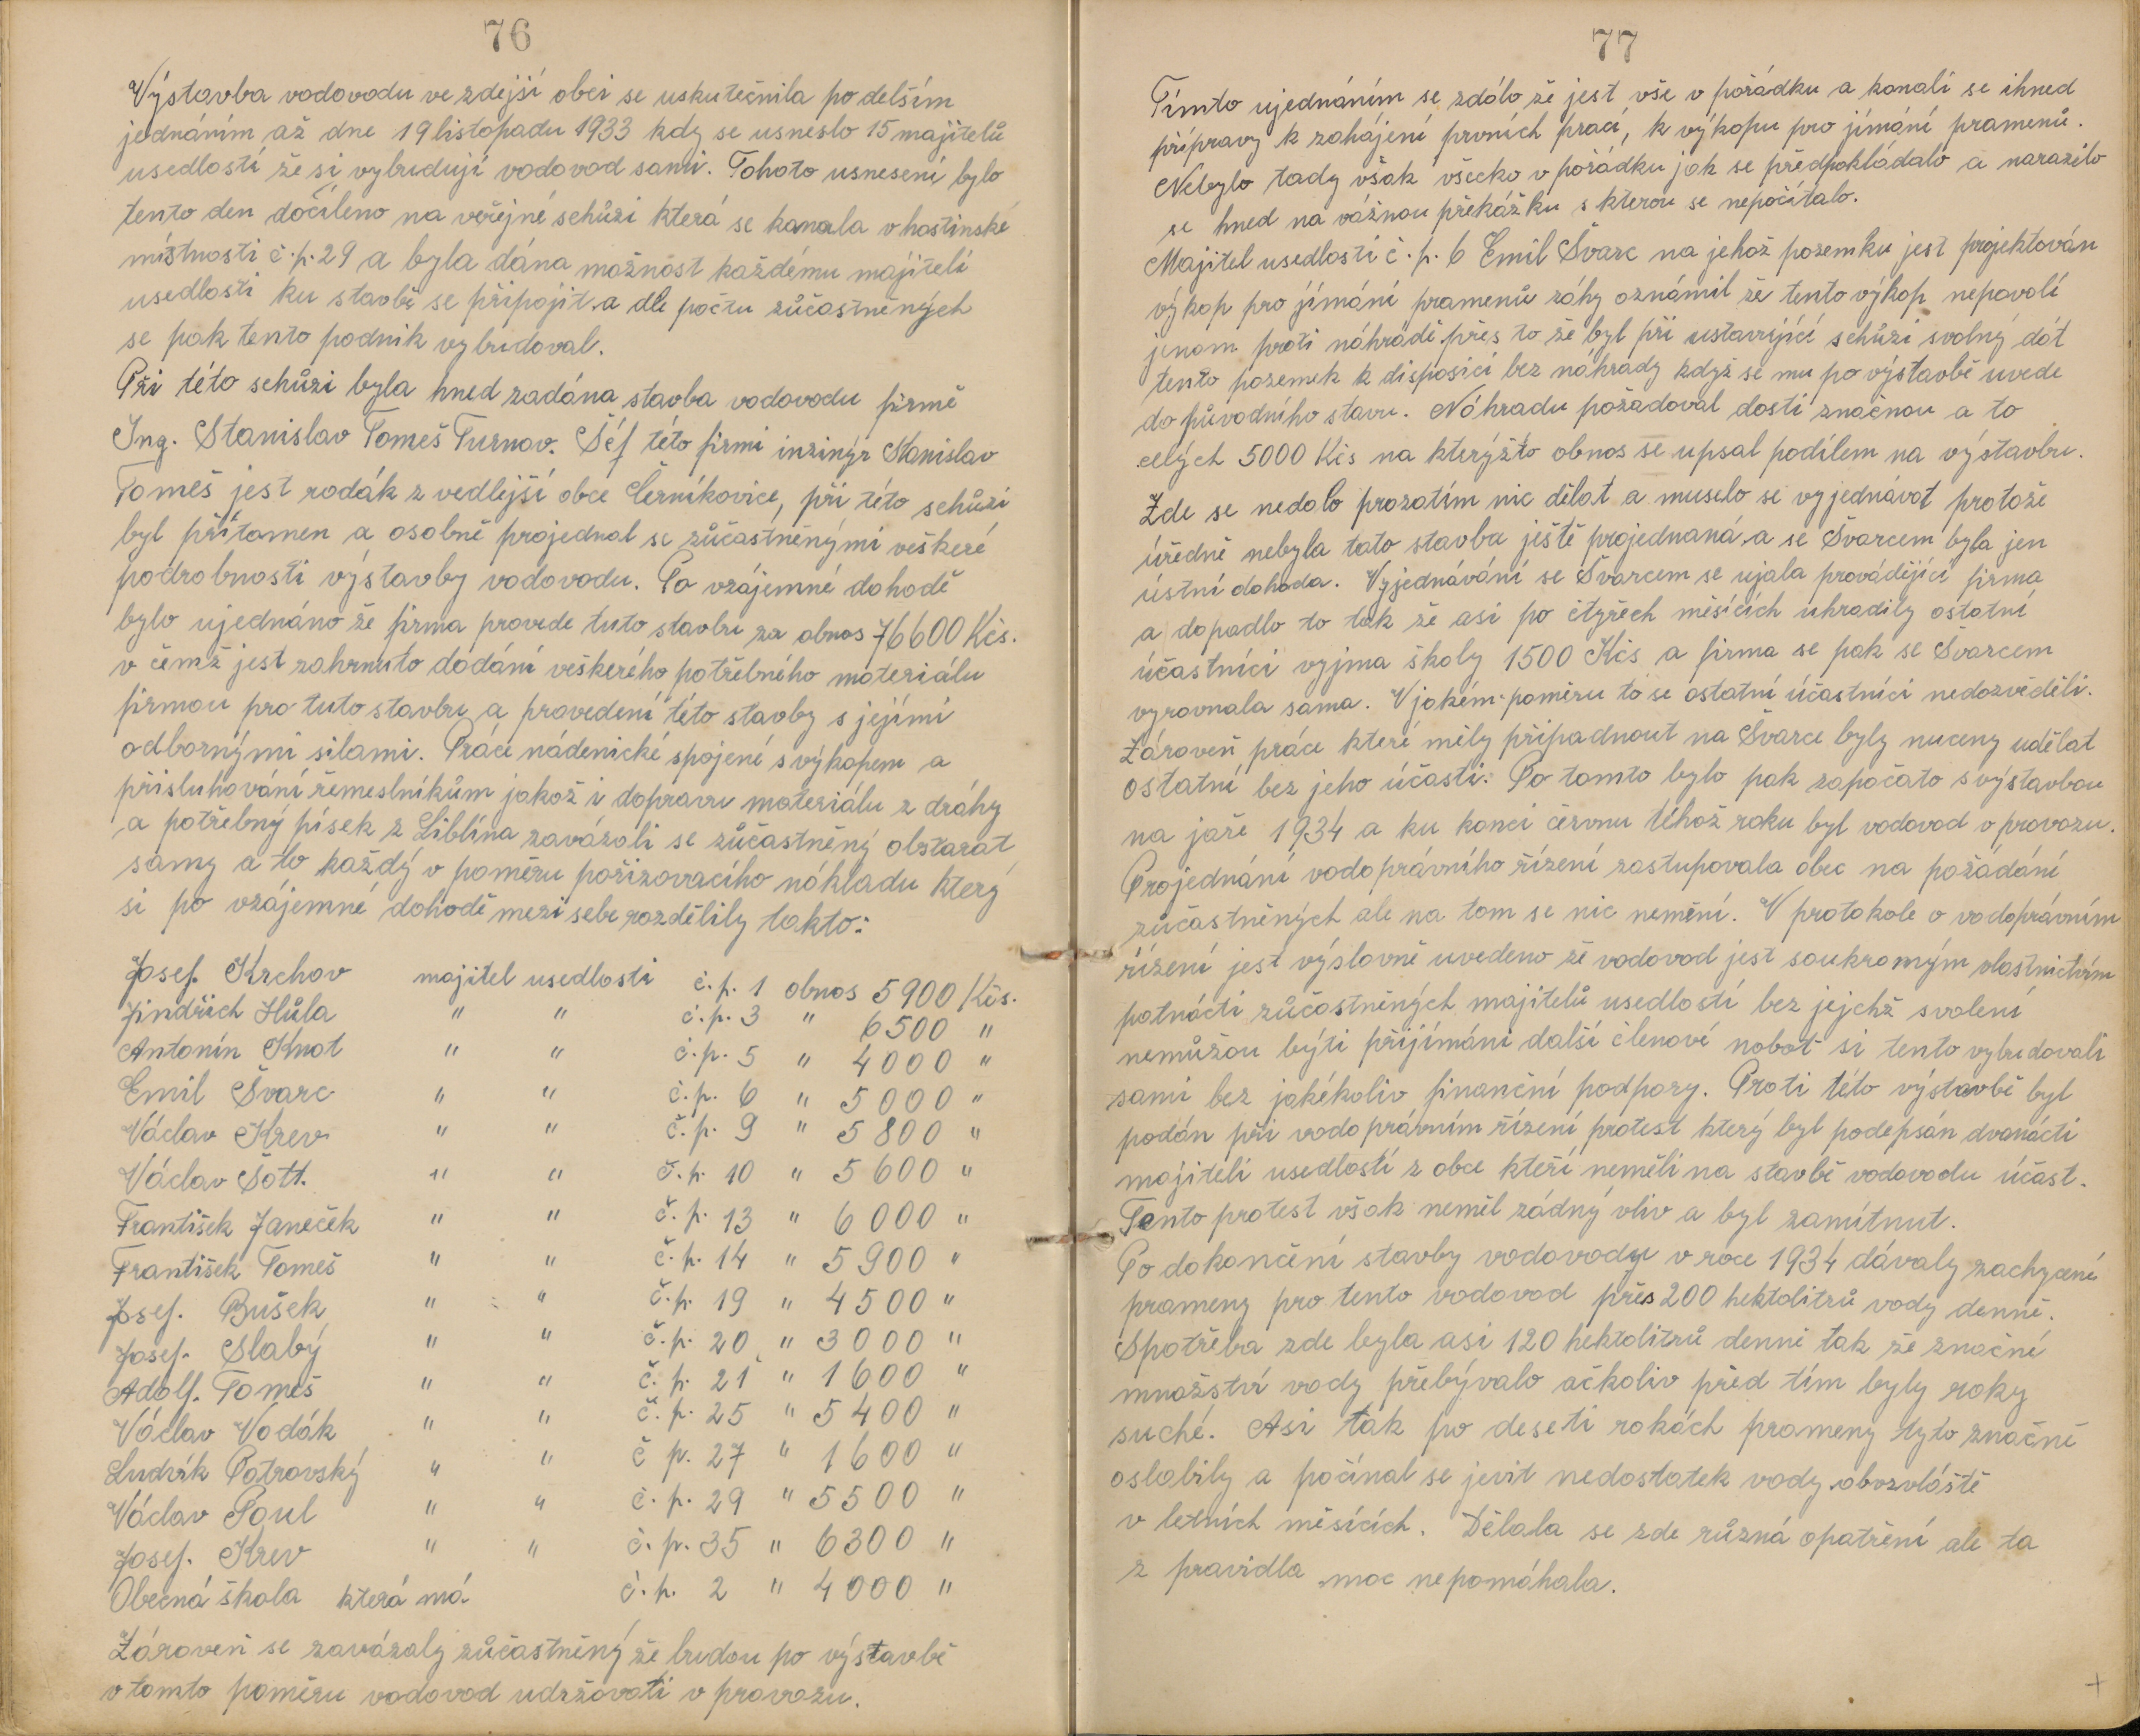 76
Výstavba vodovodu ve zdejší obci se uskutečnila po delším
jednáním až dne 19 listopadu 1933 kdy se usneslo 15 majitelů
usedlostí že si vybudují vodovod sami. Tohoto usnesení bylo
tento den docíleno na veřejné schůzi která se konala v hostinské
místnosti č.p. 29 a byla dána možnost každému majiteli
usedlosti ku stavbě se připojit a dle počtu zůčastněných
se pak tento podnik vybudoval.
Při této schůzi byla hned zadána stavba vodovodu firmě
Ing. Stanislav Tomeš Turnov. Šéf této firmi inžinýr Stanislav
Tomeš jest rodák z vedlejší obce Černíkovice, při této schůzi
byl přítomen a osobně projednal se zůčastněnými veškeré
podrobnosti výstavby vodovodu. Po vzájemné dohodě
bylo ujednáno že firma provede tuto stavbu za obnos 76600 Kčs.
v čemž jest zahrnuto dodání veškerého potřebného materiálu
firmou pro tuto stavbu a provedení této stavby s jejími
odbornými silami. Práce nádenické spojené s výkopem a
přisluhování řemeslníkům jakož i dopravu materiálu z dráhy
a potřebný písek z Liblína zavázali se zůčastněný obstarat
samy a to každý v poměru pořizovacího nákladu který
si po vzájemné dohodě mezi sebe rozdělily takto:
Josef. Krchov majitel usedlosti č.p. 1 obnos 5900 Kčs.
Jindřich Hůla " " č.p. 3 " 6500 "
Antonín Knot " " č.p. 5 " 4000 "
Emil Švarc " " č.p. 6 " 5000 "
Václav Krev " " č.p. 9 " 5800 "
Václav Šott. " " č.p. 10 " 5600 "
František Janeček " " č.p. 13 " 6000 "
František Tomeš " " č.p. 14 " 5900 "
Josef. Bušek " " č.p. 19 " 4500 "
Josef. Slabý " " č.p. 20 " 3000 "
Adolf. Tomeš " " č.p. 21 " 1600 "
Václav Vodák " " č.p. 25 " 5400 "
Ludvík Potrovský " " č p. 27 " 1600 "
Václav Poul " " č.p. 29 " 5500 "
Josef. Krev " " č.p. 35 " 6300 "
Obecná škola která má č.p. 2 " 4000 "
Zároveň se zavázaly zůčastněný že budou po výstavbě
v tomto poměru vodovod udržovati v provozu.
77
Tímto ujednáním se zdálo že jest vše v pořádku a konali se ihned
přípravy k zahájení prvních prací, k výkopu pro jímání pramenů.
Nebylo tady však všecko v pořádku jak se předpokládalo a narazilo
se hned na vážnou překážku s kterou se nepočítalo.
Majitel usedlosti č.p. 6 Emil Švarc na jehož pozemku jest projektován
výkop pro jímání pramenů záhy oznámil že tento výkop nepovolí
jenom proti náhradě přes to že byl při ustavující schůzi svolný dát
tento pozemek k disposici bez náhrady když se mu po výstavbě uvede
do původního stavu. Náhradu požadoval dosti značnou a to
celých 5000 Kčs na kterýžto obnos se upsal podílem na výstavbu.
Zde se nedalo prozatím nic dělat a muselo se vyjednávat protože
úředně nebyla tato stavba ještě projednaná a se Švarcem byla jen
ústní dohoda. Vyjednávání se Švarcem se ujala provádějící firma
a dopadlo to tak že asi po čtyřech měsících uhradily ostatní
účastníci vyjma školy 1500 Kčs a firma se pak se Švarcem
vyrovnala sama. V jakém poměru to se ostatní účastníci nedozvěděli.
Zároveň práce které měly připadnout na Švarce byly nuceny udělat
ostatní bez jeho účasti. Po tomto bylo pak započato s výstavbou
na jaře 1934 a ku konci červnu téhož roku byl vodovod v provozu.
Projednání vodoprávního řízení zastupovala obec na požádání
zůčastněných ale na tom se nic nemění. V protokole o vodoprávním
řízení jest výslovně uvedeno že vodovod jest soukromým vlastnictvím
patnácti zůčastněných majitelů usedlostí bez jejchž svolení
nemůžou býti přijímáni další členové nobot si tento vybudovali
sami bez jakékoliv finanční podpory. Proti této výstavbě byl
podán při vodoprávním řízení protest který byl podepsán dvanácti
majiteli usedlostí z obce kteří neměli na stavbě vodovodu účast.
Tento protest však neměl žádný vliv a byl zamítnut.
Po dokončení stavby vodovodu v roce 1934 dávaly zachycené
prameny pro tento vodovod přes 200 hektolitrů vody denně.
Spotřeba zde byla asi 120 hektolitrů denně tak že značné
množství vody přebývalo ačkoliv před tím byly roky
suché. Asi tak po deseti rokách prameny tyto značně
oslabily a počínal se jevit nedostatek vody obzvláště
v letních měsících. Dělala se zde různá opatření ale ta
z pravidla moc nepomáhala.